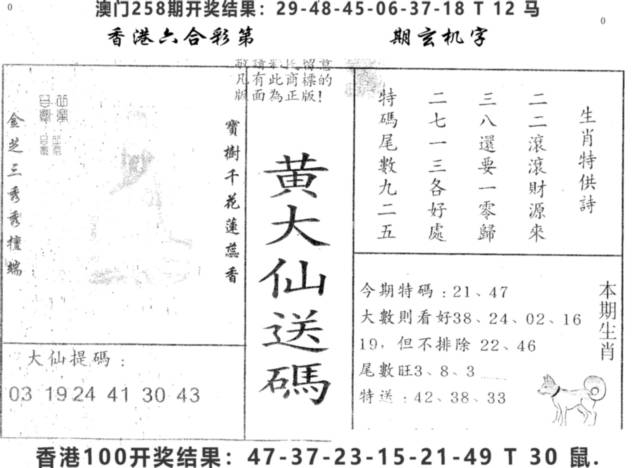 澳门258期开奖结果：29-48-45-06-37-18 T 12 马
香港六合彩第 期玄机字
敬請彩民留意
凡有此商標的
版面為正版！
生肖特供詩
二二滾滾財源來
三八還要一零歸
二七一三各好處
特碼尾數九二五
寶樹千花蓮蕊香
金芝三秀秀檀端
黄大仙送碼
本期生肖
今期特碼：21、47
大數則看好38、24、02、16
19，但不排除 22、46
尾數旺3、8、3
特送：42、38、33
大仙提碼：
03 19 24 41 30 43
香港100开奖结果：47-37-23-15-21-49 T 30 鼠.